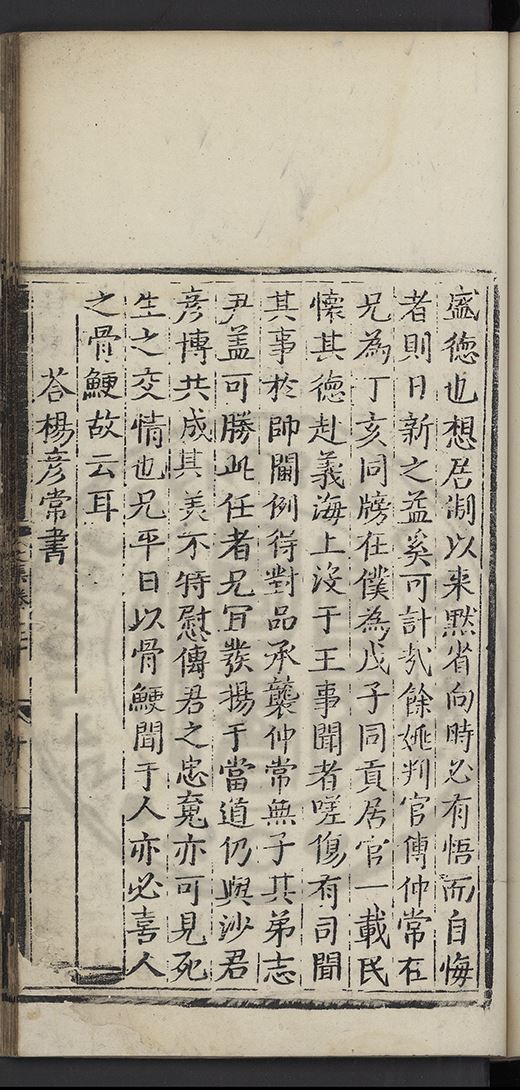 盛德也想居湖以来默省向時必有悟而自悔
者則日新之益奚可計㢤餘姚判官傳仲常在
兄為丁亥同牓在僕為戊子同貢居官一載民
懷其德赴義海上没于王事聞者嗟傷有司聞
其事於帥閫例得對品承襲仲常無子其弟志
尹盖可勝此任者兄冝發揚于當道仍與沙君
彦博共成其美不特慰傳君之忠䰟亦可見死
生之交情也兄平日以骨鯁聞于人亦必喜人
之骨鯁故云耳
荅楊彦常書